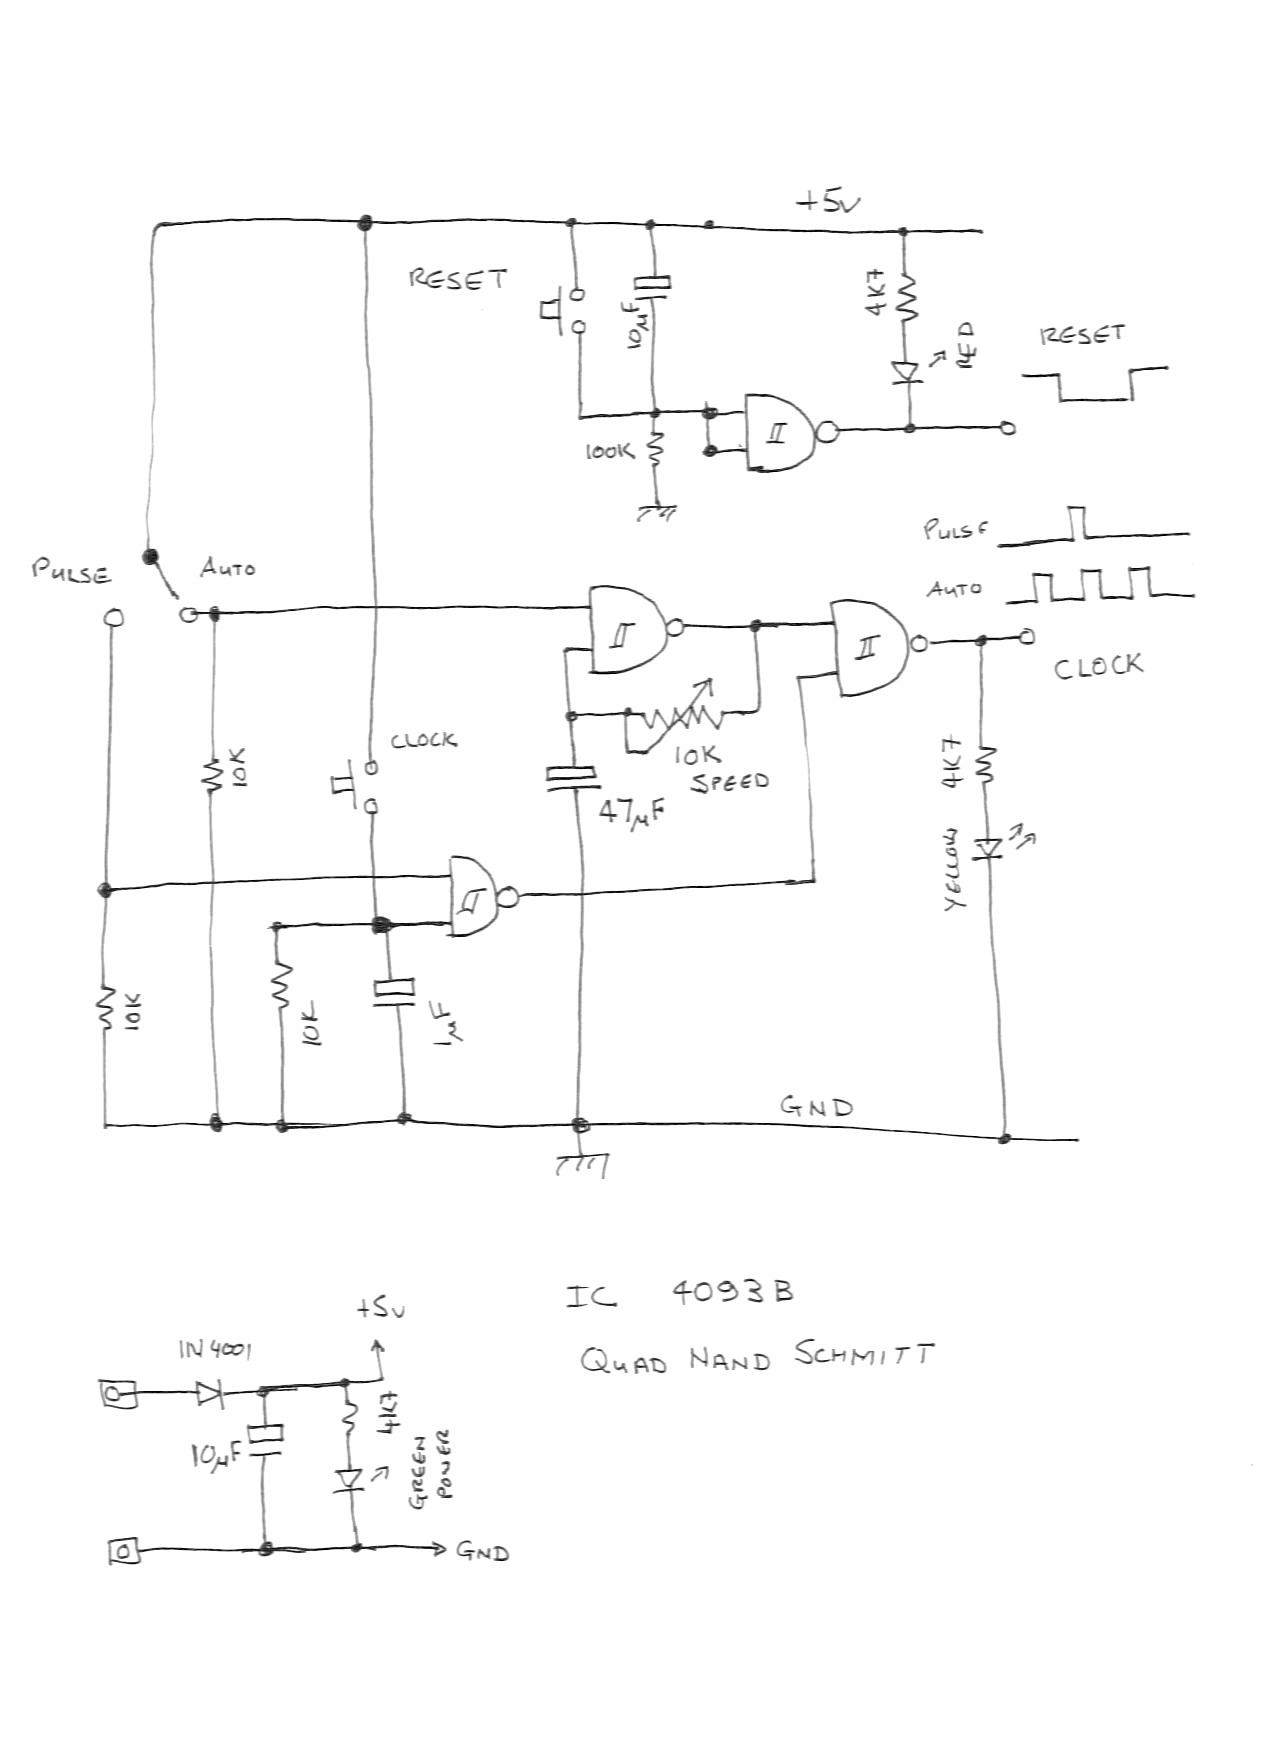 +5v
RESET
10µF
4K7
RED
RESET
100K
PULSE
AUTO
PULSE
AUTO
CLOCK
CLOCK
10K
10K
SPEED
47µF
4K7
YELLOW
10K
10K
1µF
GND
IC 4093B
QUAD NAND SCHMITT
+5v
IN4001
10µF
4K7
GREEN
POWER
GND